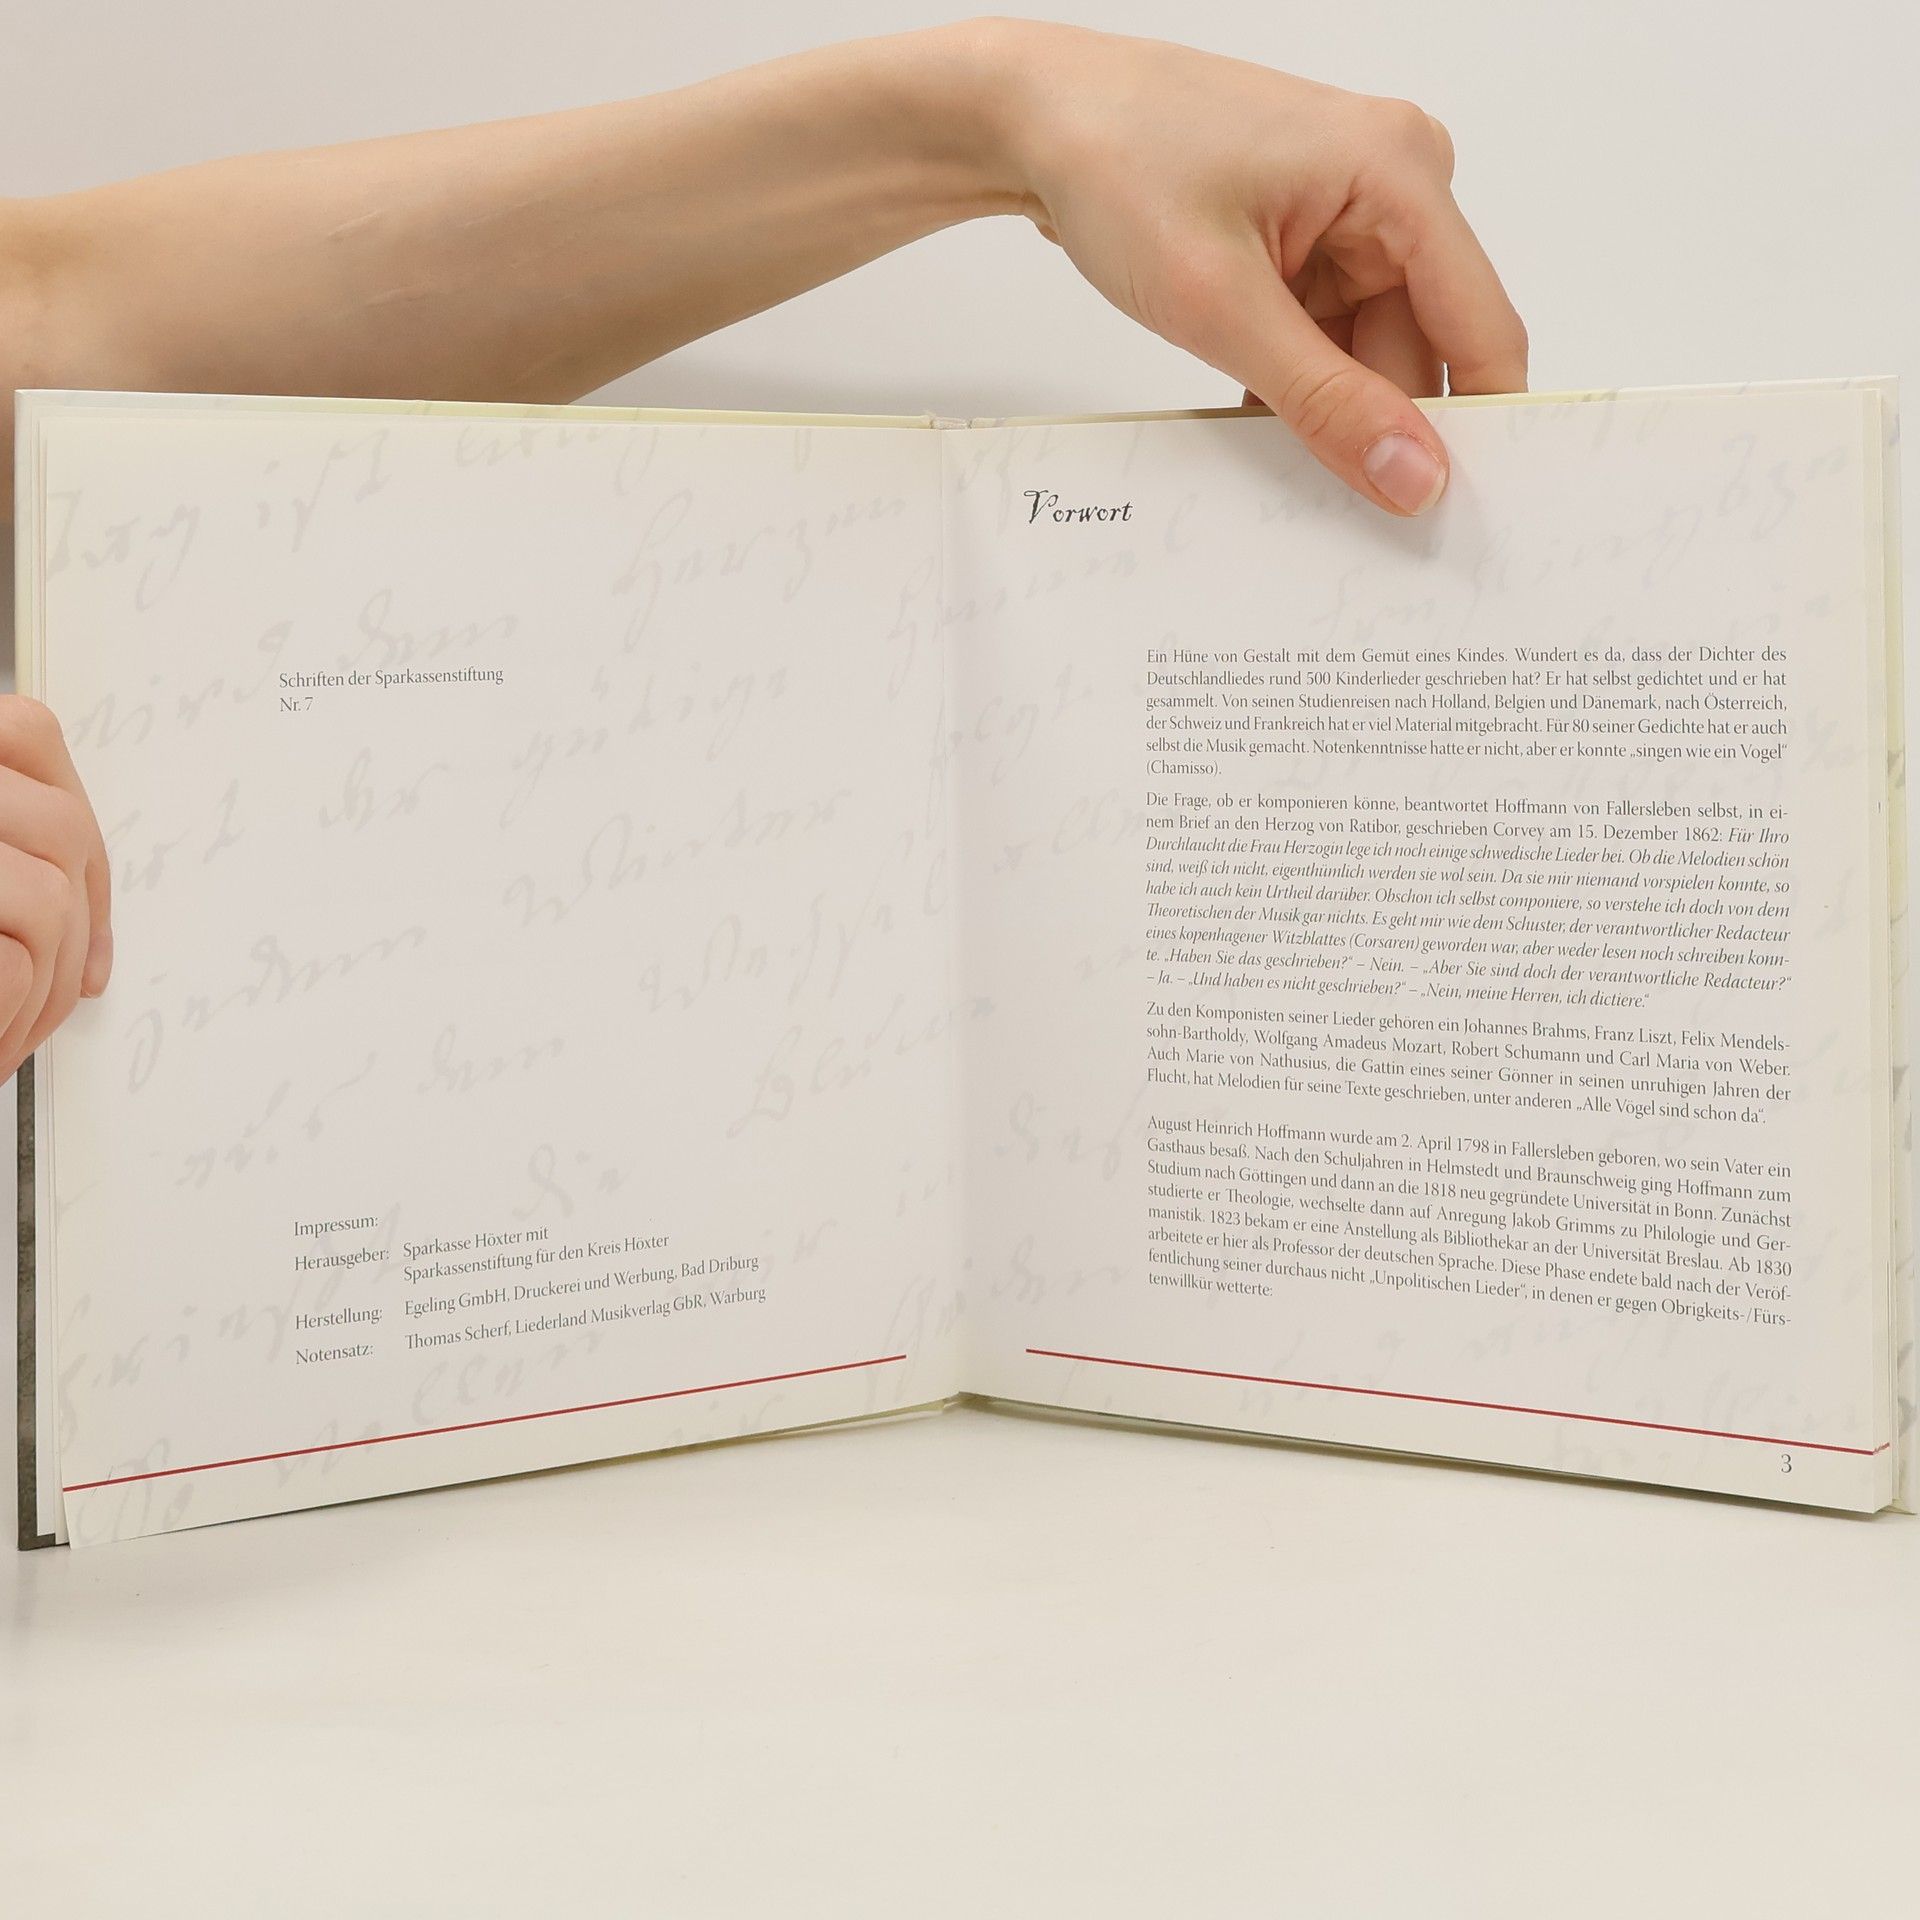 Schriften der Sparkassenstiftung
Nr. 7
Impressum:
Herausgeber: Sparkasse Höxter mit
Sparkassenstiftung für den Kreis Höxter
Herstellung: Egeling GmbH, Druckerei und Werbung, Bad Driburg
Notensatz: Thomas Scherf, Liederland Musikverlag GbR, Warburg
Vorwort
Ein Hüne von Gestalt mit dem Gemüt eines Kindes. Wundert es da, dass der Dichter des
Deutschlandliedes rund 500 Kinderlieder geschrieben hat? Er hat selbst gedichtet und er hat
gesammelt. Von seinen Studienreisen nach Holland, Belgien und Dänemark, nach Österreich,
der Schweiz und Frankreich hat er viel Material mitgebracht. Für 80 seiner Gedichte hat er auch
selbst die Musik gemacht. Notenkenntnisse hatte er nicht, aber er konnte „singen wie ein Vogel“
(Chamisso).
Die Frage, ob er komponieren könne, beantwortet Hoffmann von Fallersleben selbst, in ei-
nem Brief an den Herzog von Ratibor, geschrieben Corvey am 15. Dezember 1862: Für Ihro
Durchlaucht die Frau Herzogin lege ich noch einige schwedische Lieder bei. Ob die Melodien schön
sind, weiß ich nicht, eigenthümlich werden sie wol sein. Da sie mir niemand vorspielen konnte, so
habe ich auch kein Urtheil darüber. Obschon ich selbst componiere, so verstehe ich doch von dem
Theoretischen der Musik gar nichts. Es geht mir wie dem Schuster, der verantwortlicher Redacteur
eines kopenhagener Witzblattes (Corsaren) geworden war, aber weder lesen noch schreiben konn-
te. „Haben Sie das geschrieben?“ – Nein. – „Aber Sie sind doch der verantwortliche Redacteur?“
– Ja. – „Und haben es nicht geschrieben?“ – „Nein, meine Herren, ich dictiere.“
Zu den Komponisten seiner Lieder gehören ein Johannes Brahms, Franz Liszt, Felix Mendels-
sohn-Bartholdy, Wolfgang Amadeus Mozart, Robert Schumann und Carl Maria von Weber.
Auch Marie von Nathusius, die Gattin eines seiner Gönner in seinen unruhigen Jahren der
Flucht, hat Melodien für seine Texte geschrieben, unter anderen „Alle Vögel sind schon da“.
August Heinrich Hoffmann wurde am 2. April 1798 in Fallersleben geboren, wo sein Vater ein
Gasthaus besaß. Nach den Schuljahren in Helmstedt und Braunschweig ging Hoffmann zum
Studium nach Göttingen und dann an die 1818 neu gegründete Universität in Bonn. Zunächst
studierte er Theologie, wechselte dann auf Anregung Jakob Grimms zu Philologie und Ger-
manistik. 1823 bekam er eine Anstellung als Bibliothekar an der Universität Breslau. Ab 1830
arbeitete er hier als Professor der deutschen Sprache. Diese Phase endete bald nach der Veröf-
fentlichung seiner durchaus nicht „Unpolitischen Lieder“, in denen er gegen Obrigkeits-/Fürs-
tenwillkür wetterte:
3